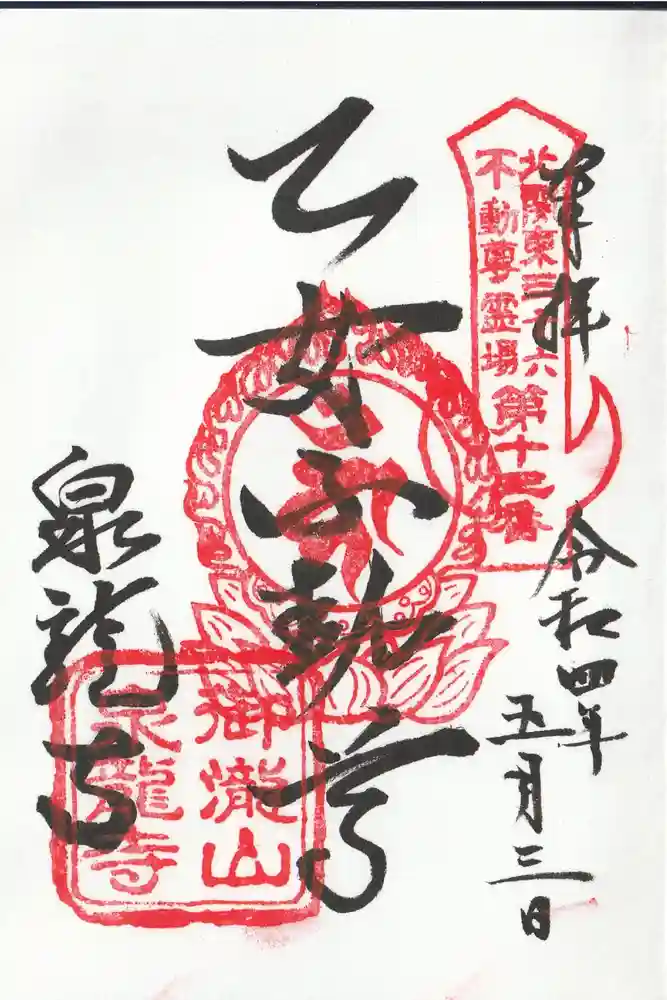 奉拝
北関東三十六
不動尊霊場
第十七番
令和四年
五月三日
乙女不動尊
泉龍寺
御瀧山
泉龍寺